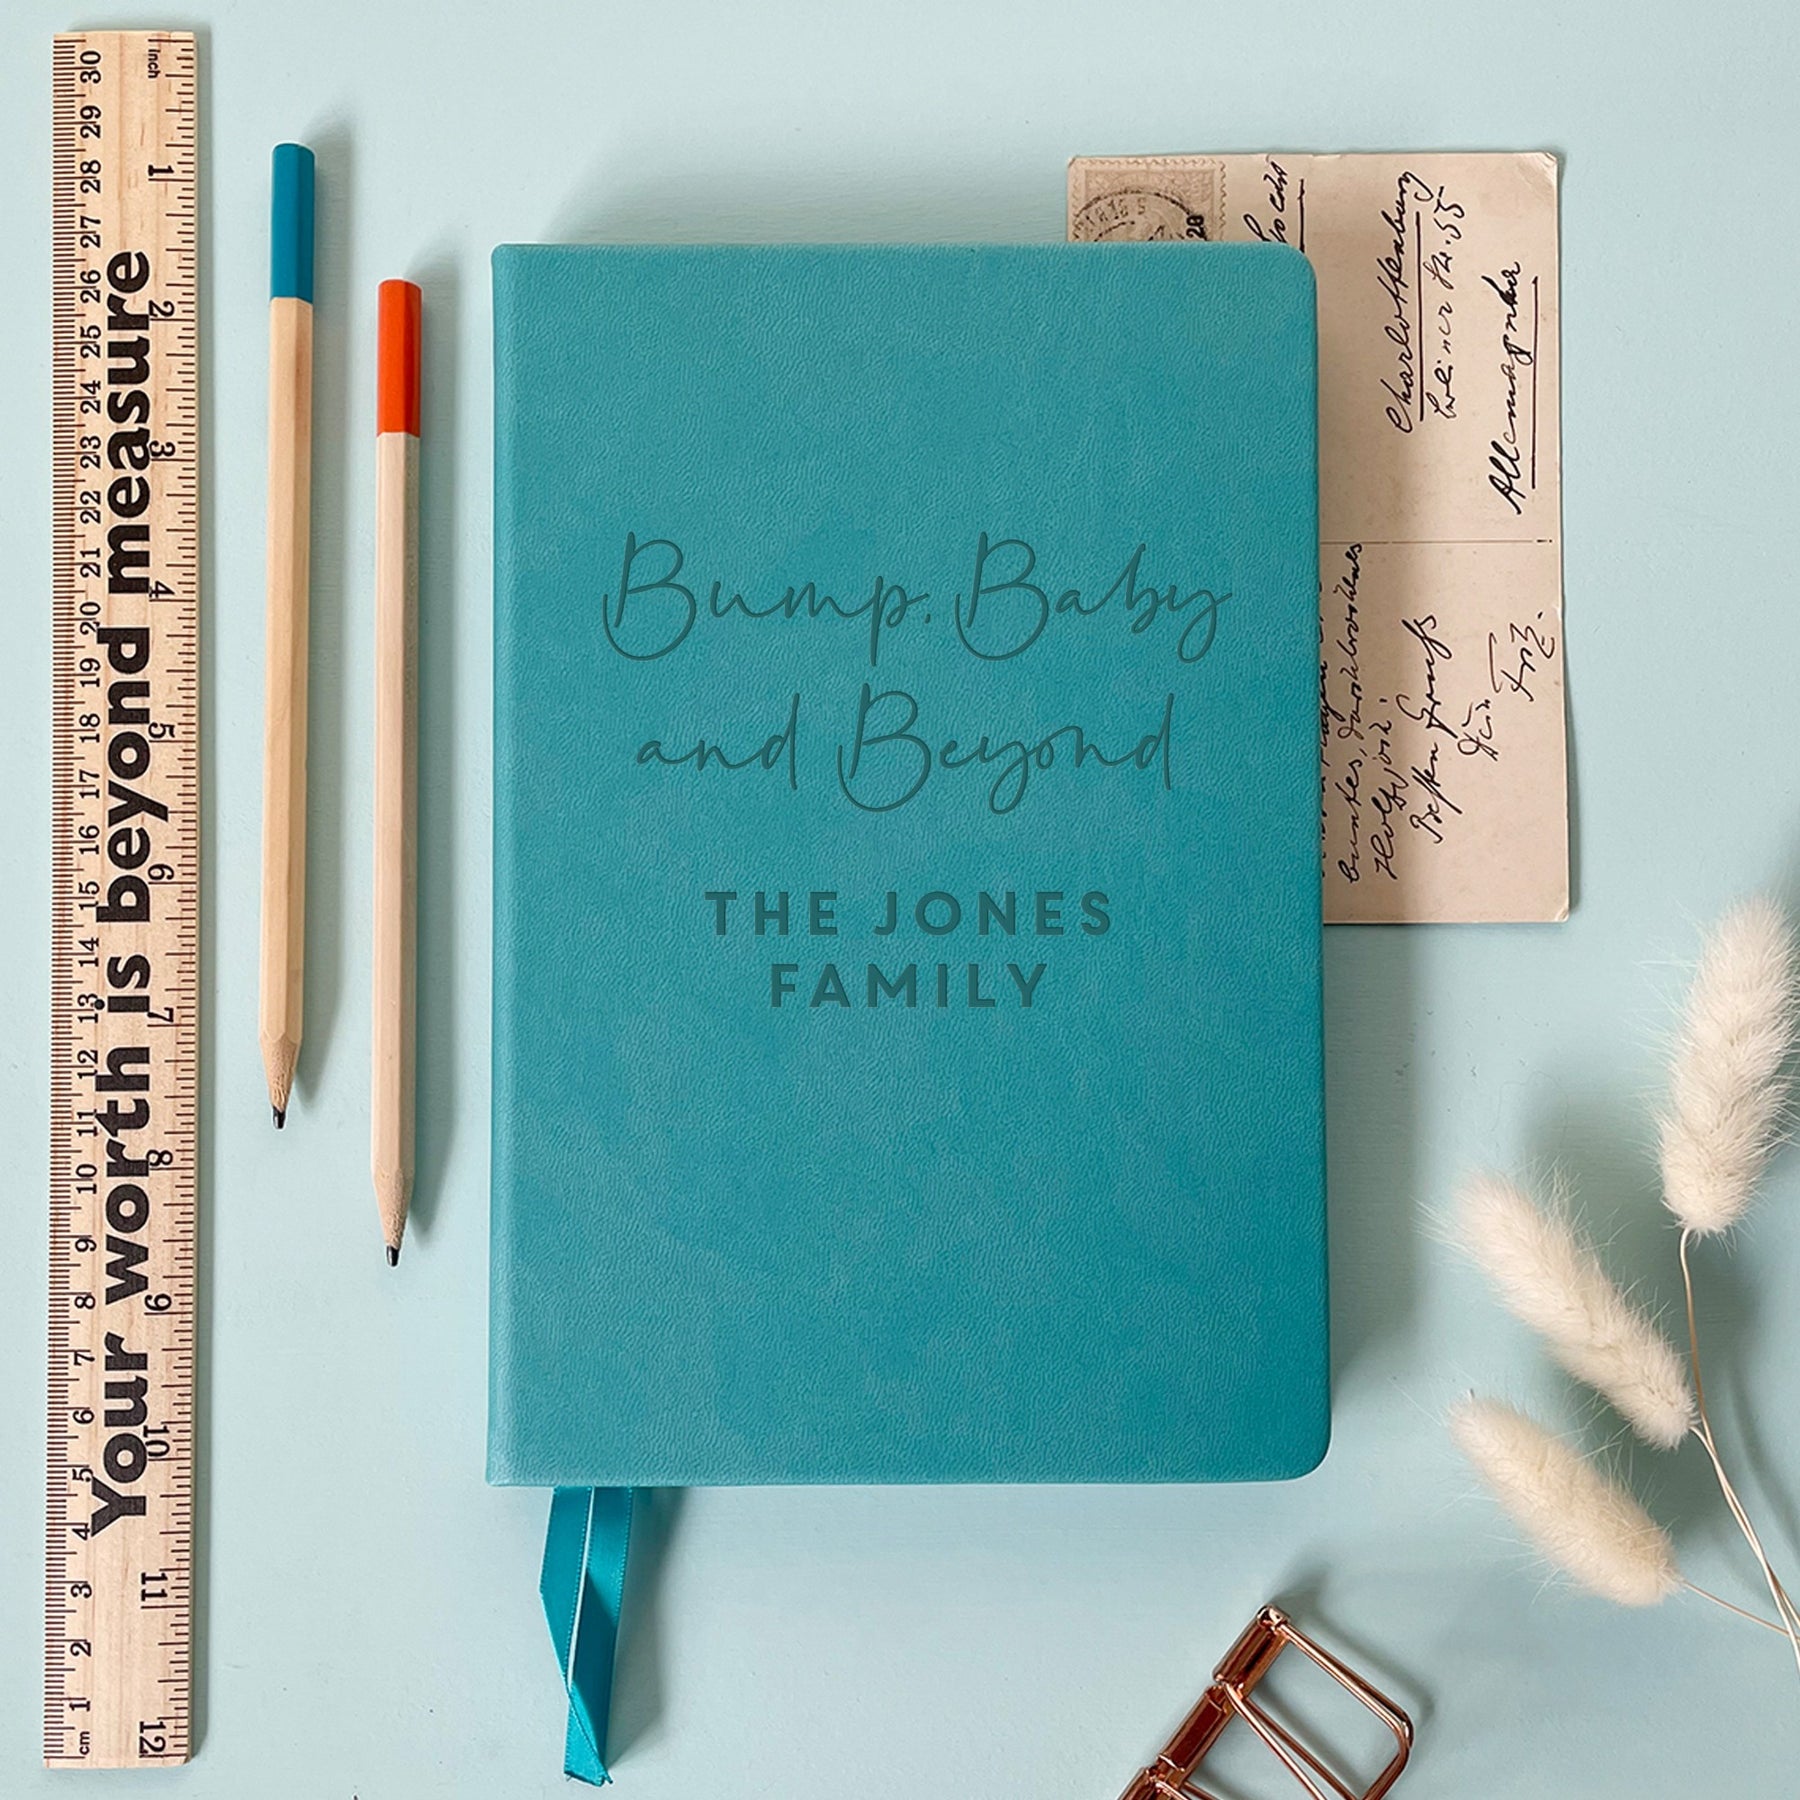 Your worth is beyond measure
inch
1
2
3
4
5
6
7
8
9
10
11
12
30
29
28
27
26
25
24
23
22
21
20
19
18
17
16
15
14
13
12
11
10
9
8
7
6
5
4
3
2
1
cm
Bump, Baby
and Beyond
THE JONES
FAMILY
20
Charlottenburg
Besten Gruß
Dein
Fritz.